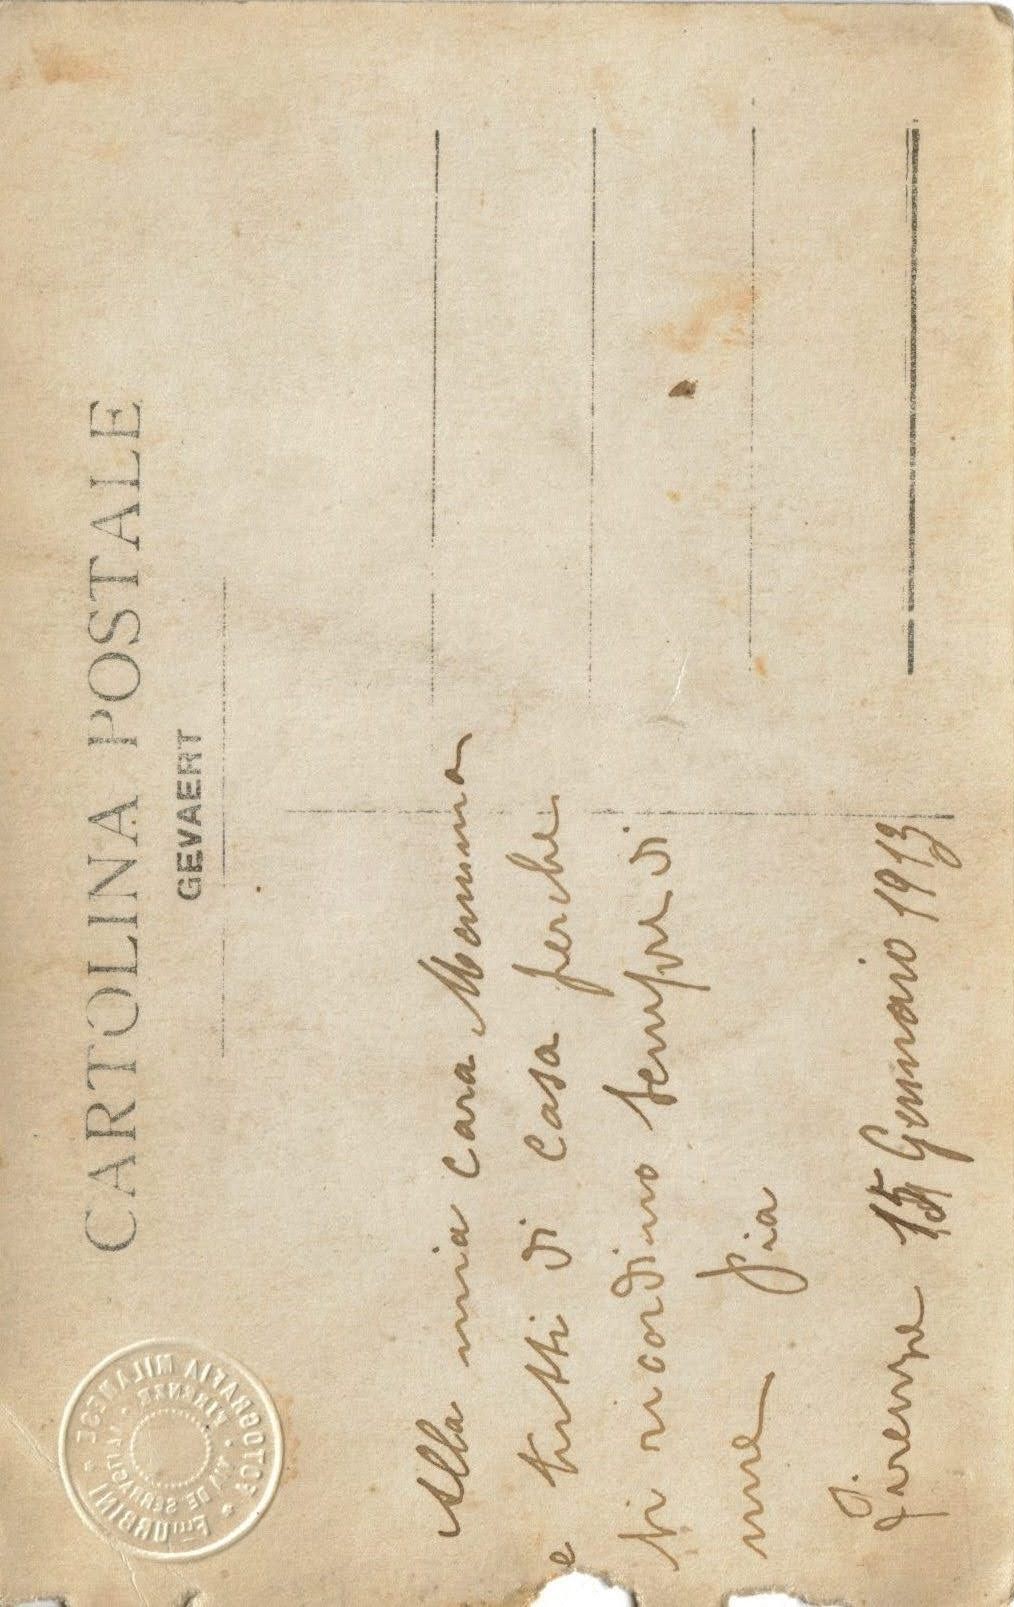 CARTOLINA POSTALE
GEVAERT
FOTOGRAFIA MILANESE
Flli URBINI
FIRENZE
VIA DE SERRAGLI
Alla mia cara Memma
e tutti di casa perche
si ricordino sempre di
me Pia
Firenze 15 Gennaio 1913